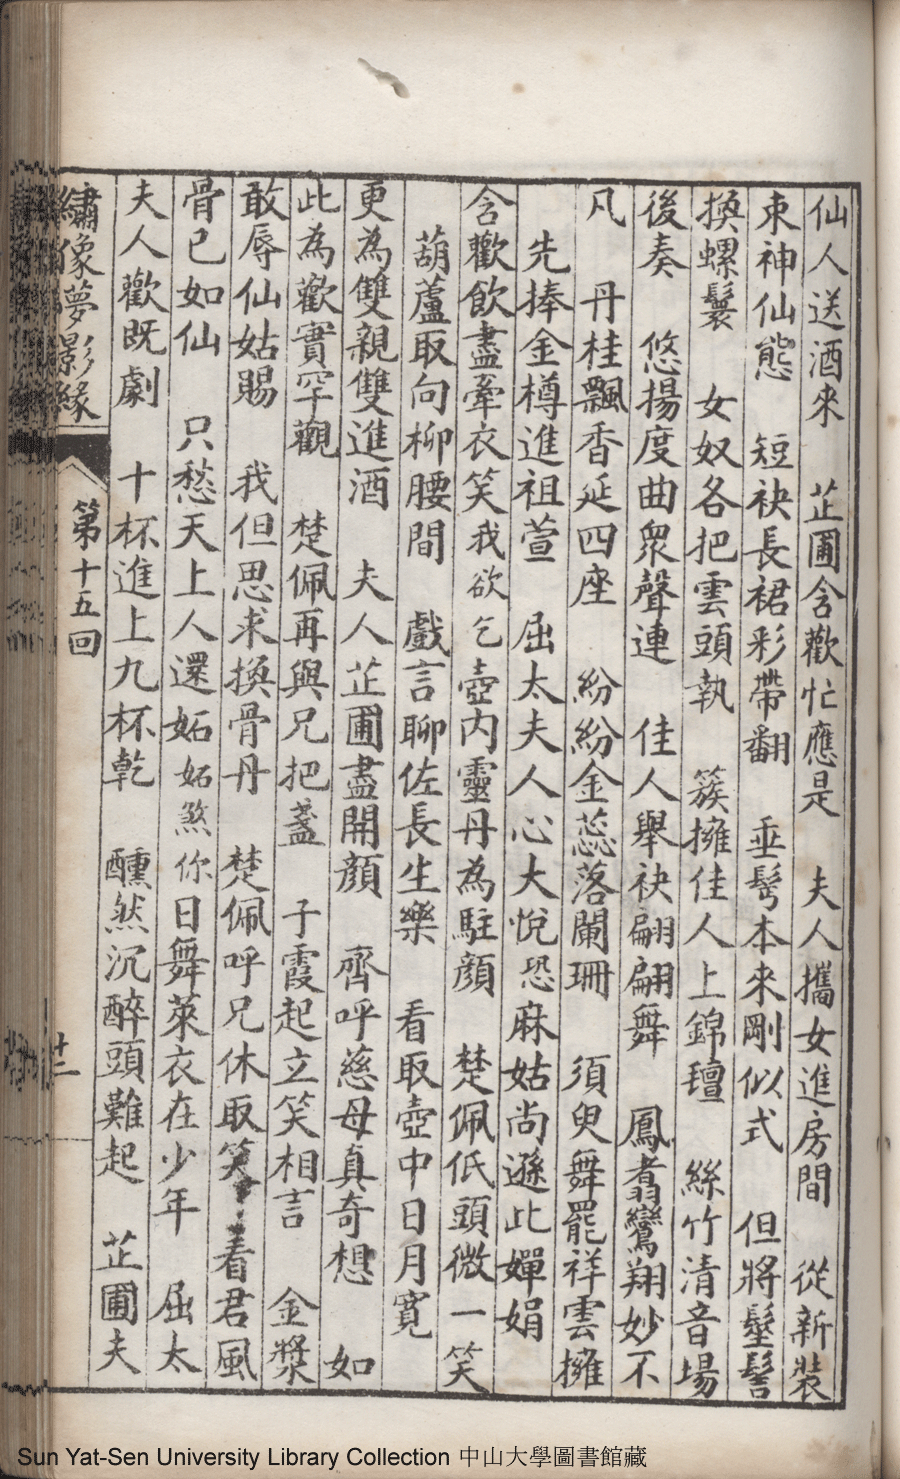 仙人送酒來　芷圃含歡忙應是　夫人攜女進房間　從新裝
束神仙態　短袂長裙彩帶翻　垂髫本來剛似式　但將髲髻
換螺鬟　女奴各把雲頭執　簇擁佳人上錦氊　絲竹清音場
後奏　悠揚度曲衆聲連　佳人舉袂翩翩舞　鳳翥鸞翔妙不
凡　丹桂飄香延四座　紛紛金蕊落闌珊　須臾舞罷祥雲擁
先捧金樽進祖萱　屈太夫人心大悅恐麻姑尚遜此嬋娟
含歡飲盡牽衣笑我欲乞壺內靈丹為駐顔　楚佩低頭微一笑
葫蘆取向柳腰間　戲言聊佐長生樂　看取壺中日月寬
更為雙親雙進酒　夫人芷圃盡開顔　齊呼慈母真奇想　如
此為歡實罕觀　楚佩再與兄把盞　子霞起立笑相言　金漿
敢辱仙姑賜　我但思求換骨丹　楚佩呼兄休取笑　看君風
骨已如仙　只愁天上人還妬妬煞你日舞萊衣在少年　屈太
夫人歡既劇　十杯進上九杯乾　醺然沉醉頭難起　芷圃夫
繡像夢影緣　第十五回　十二
Sun Yat-Sen University Library Collection 中山大學圖書館藏